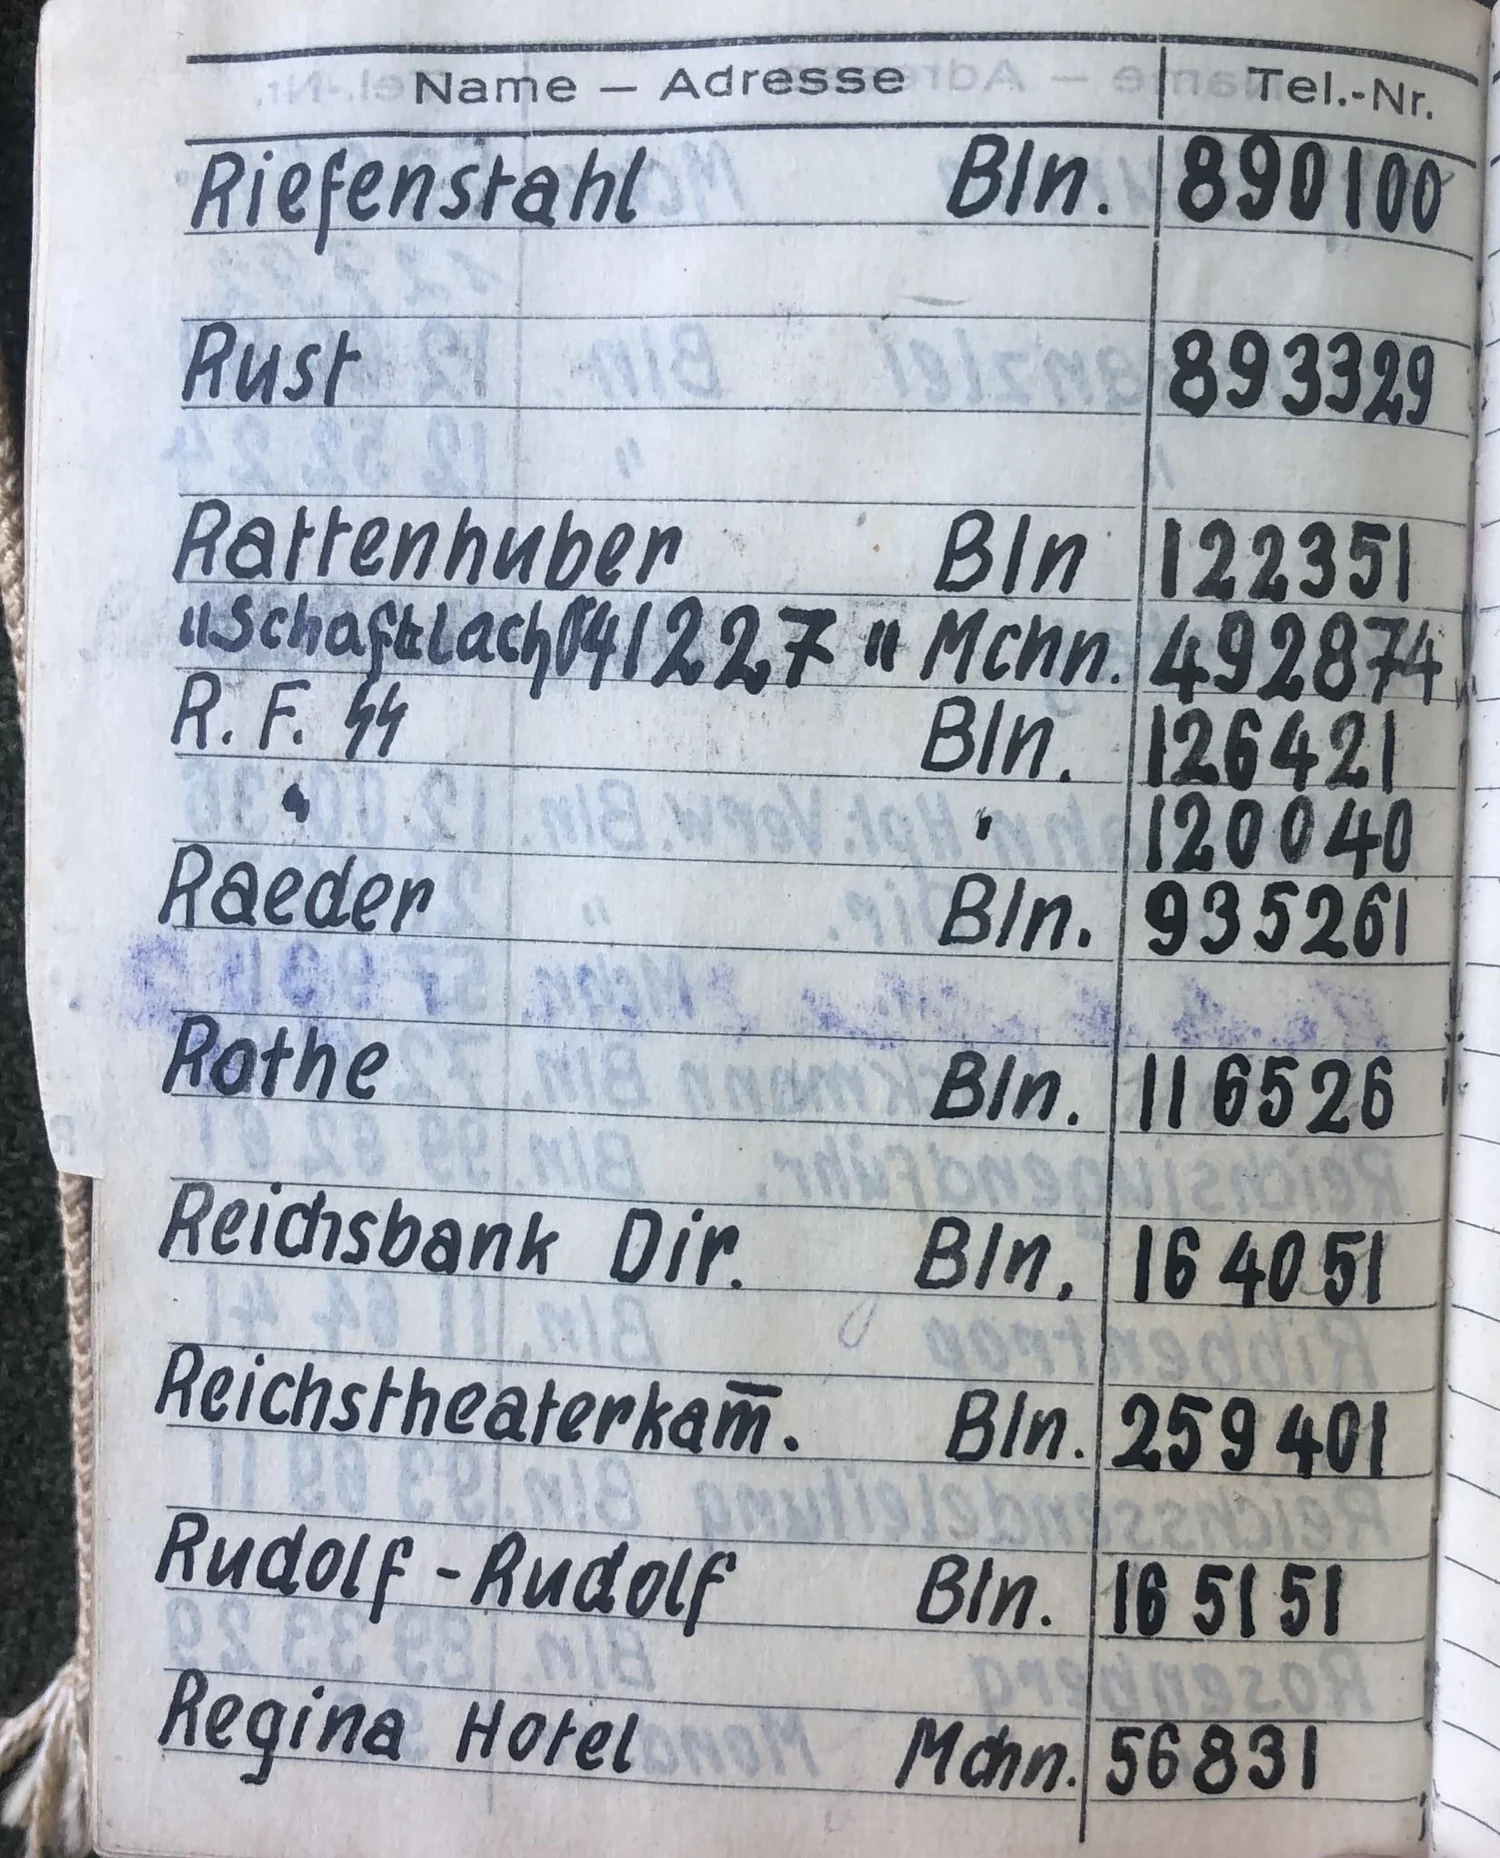 Name – Adresse Tel.-Nr.
Riefenstahl Bln. 890100
Rust 893329
Rattenhuber Bln 122351
"Schaftlach 041227 " Mchn. 492874
R. F. ᛋᛋ Bln. 126421
" " 120040
Raeder Bln. 935261
Rothe Bln. 116526
Reichsbank Dir. Bln. 16 40 51
Reichstheaterkam̅. Bln. 259 401
Rudolf - Rudolf Bln. 16 51 51
Regina Hotel Mchn. 56831